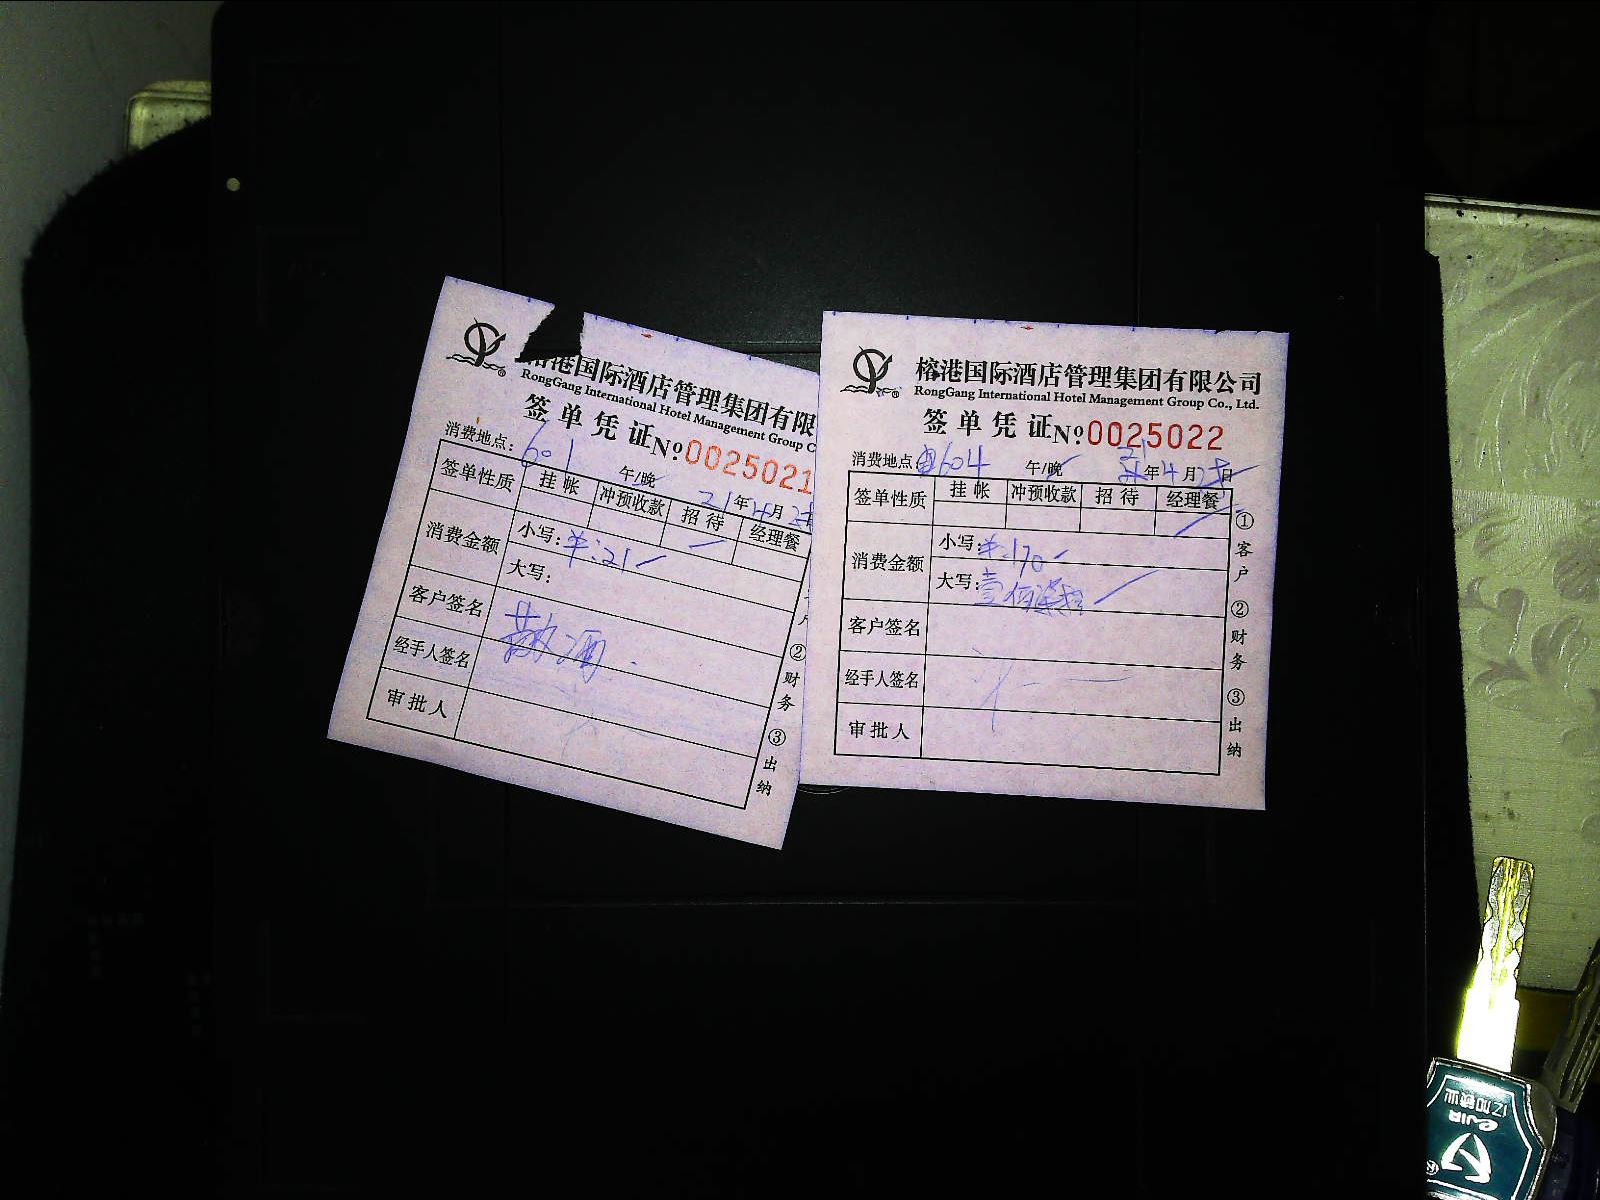 港国际酒店管理集团有限
RongGang International Hotel Management Group C
签单凭证 №0025021
消费地点: 601 午/晚 21年4月
签单性质 挂帐 冲预收款 招待 经理餐
消费金额 小写: ¥:21
大写:
客户签名
敬酒
经手人签名
审批人
② 财务 ③ 出纳
榕港国际酒店管理集团有限公司
RongGang International Hotel Management Group Co., Ltd.
签单凭证 №0025022
消费地点: 604 午/晚 21年4月 日
签单性质 挂帐 冲预收款 招待 经理餐
消费金额 小写: ¥:170
大写: 壹佰柒拾
客户签名
经手人签名
审批人
① 客户 ② 财务 ③ 出纳
亿加锁业
eJIA